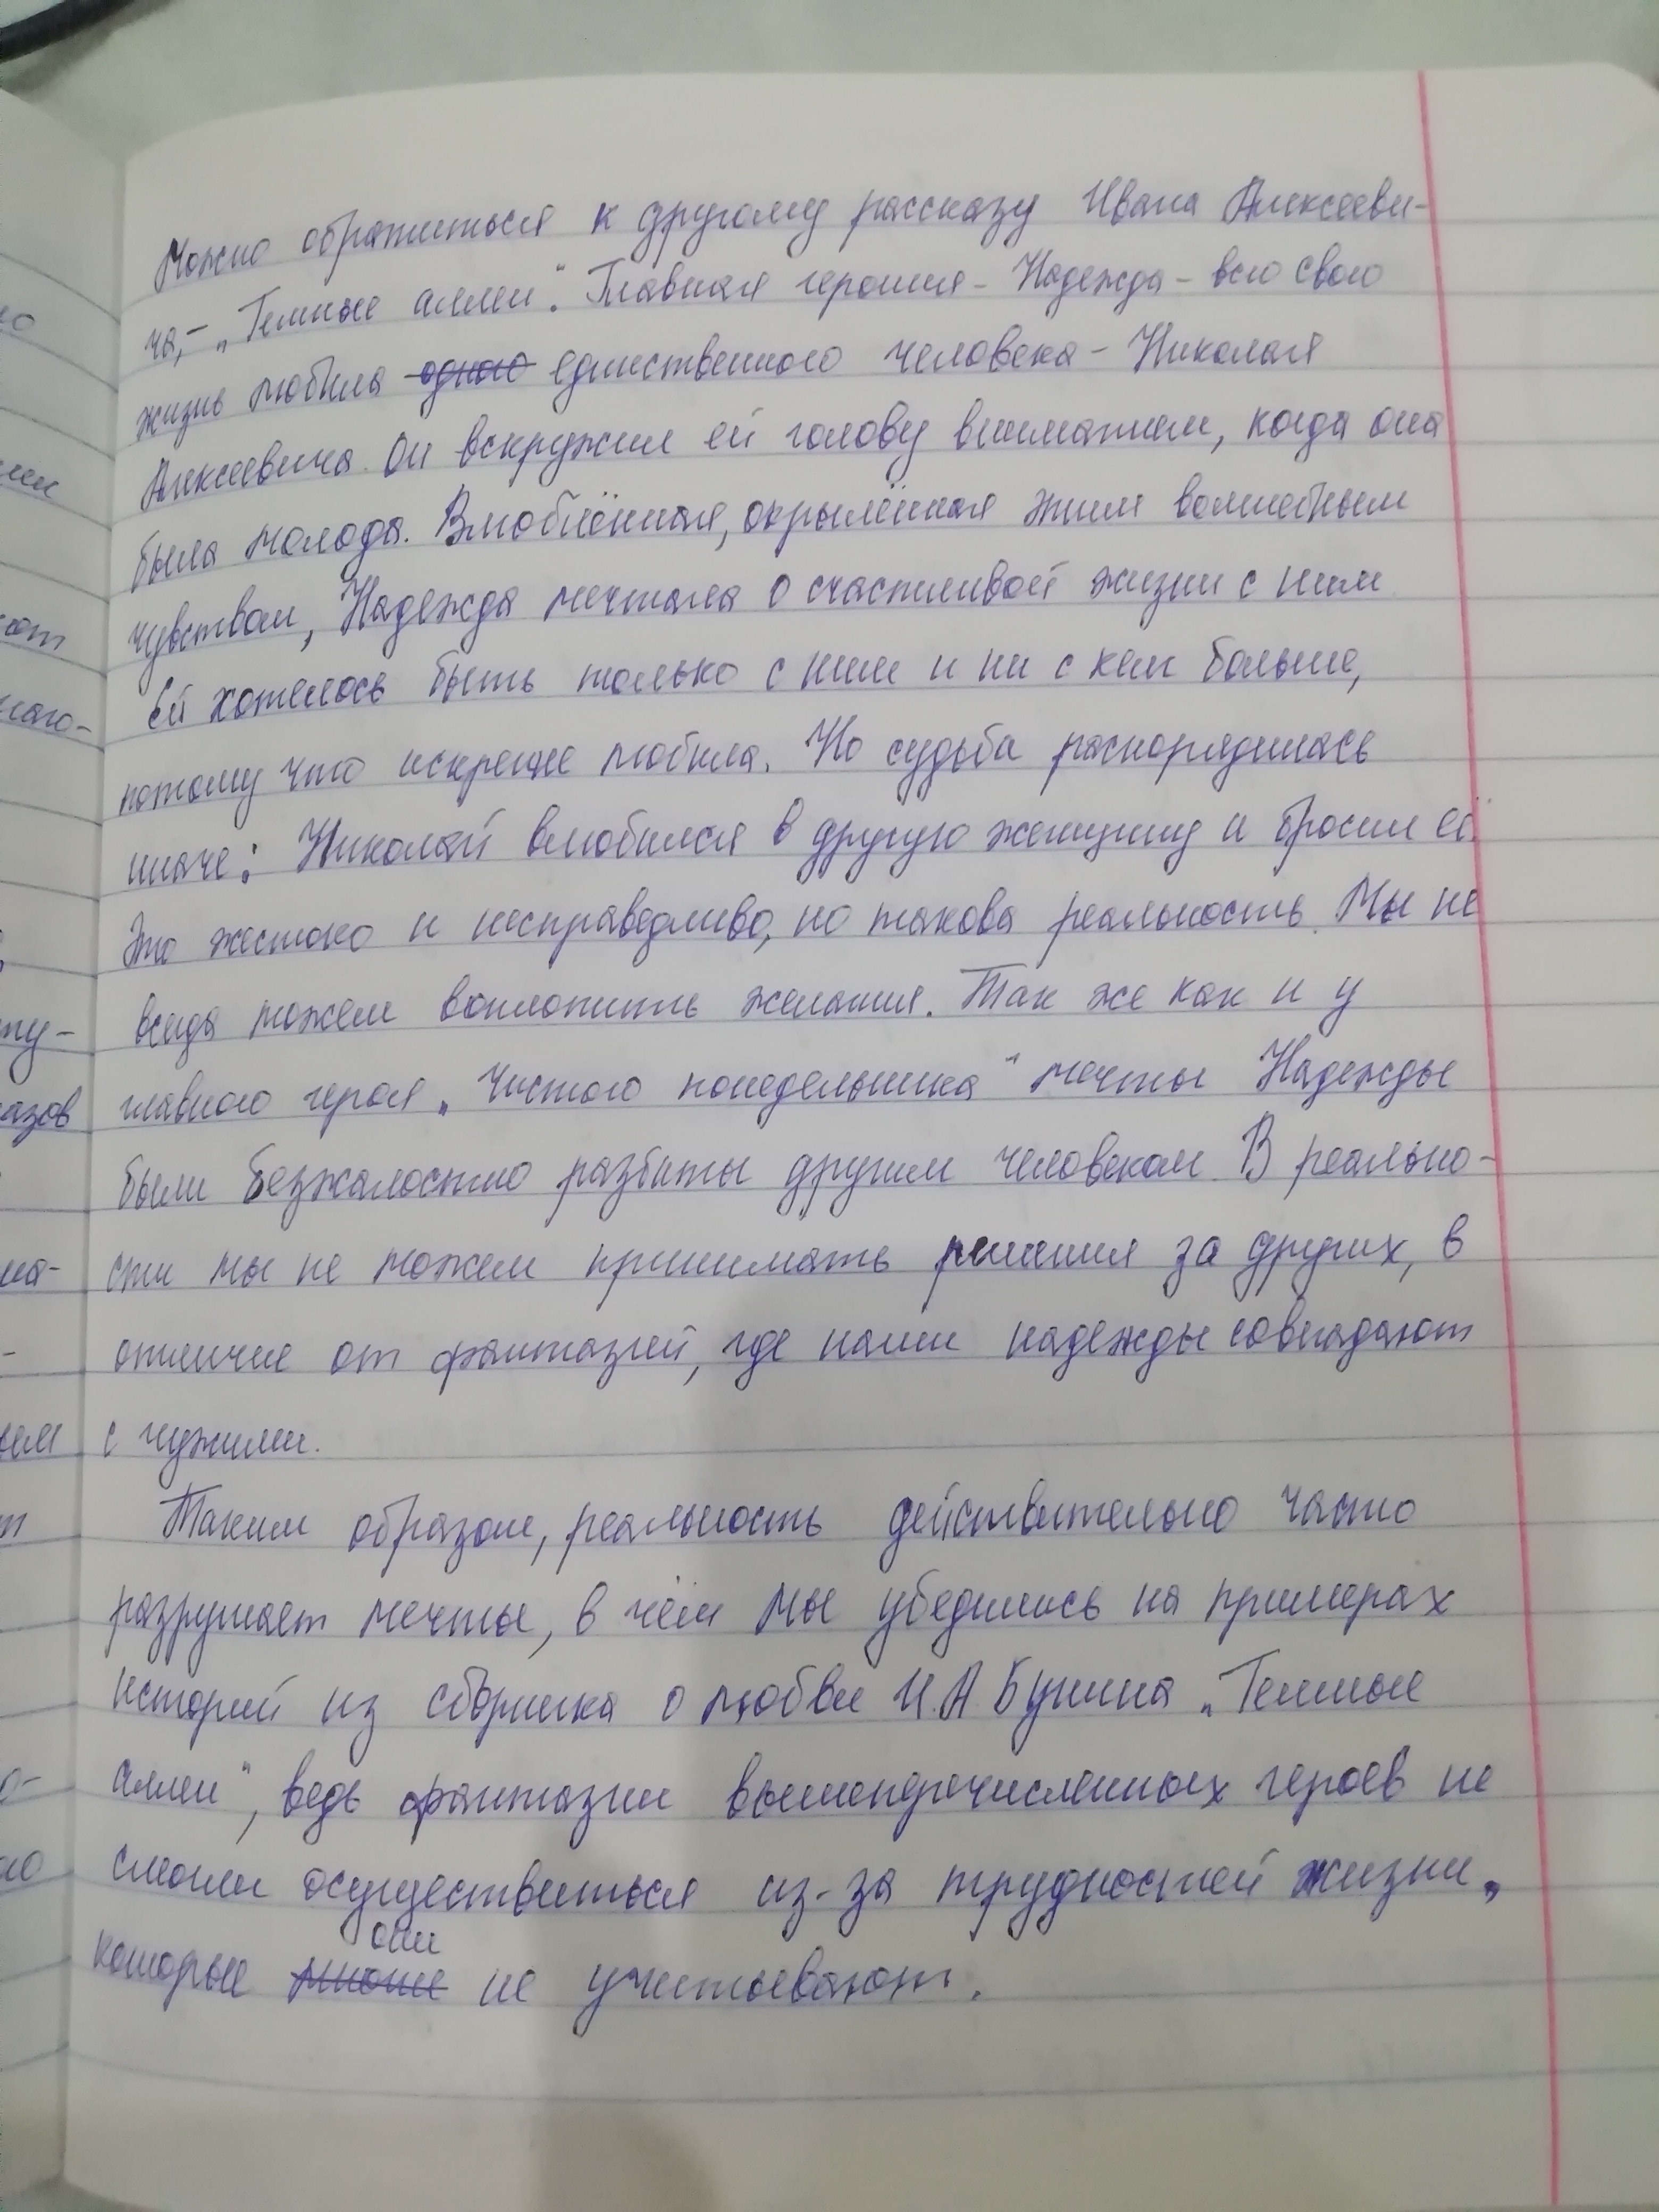 Можно обратиться к другому рассказу Ивана Алексееви-
ча, – „Темные аллеи“. Главная героиня – Надежда – всю свою
жизнь любила одного единственного человека – Николая
Алексеевича. Он вскружил ей голову вниманием, когда она
была молода. Влюблённая, окрылённая этим волшебным
чувством, Надежда мечтала о счастливой жизни с ним.
Ей хотелось быть только с ним и ни с кем больше,
потому что искренне любила. Но судьба распорядилась
иначе: Николай влюбился в другую женщину и бросил её.
Это жестоко и несправедливо, но такова реальность. Мы не
всегда можем воплотить желания. Так же как и у
главного героя „Чистого понедельника“ мечты Надежды
были безжалостно разбиты другим человеком. В реально-
сти мы не можем принимать решения за других, в
отличие от фантазий, где наши надежды совпадают
с чужими.
Таким образом, реальность действительно часто
разрушает мечты, в чём мы убедились на примерах
историй из сборника о любви И.А. Бунина „Темные
аллеи“, ведь фантазии вышеперечисленных героев не
смогли осуществиться из-за трудностей жизни,
которые они не учитывают.